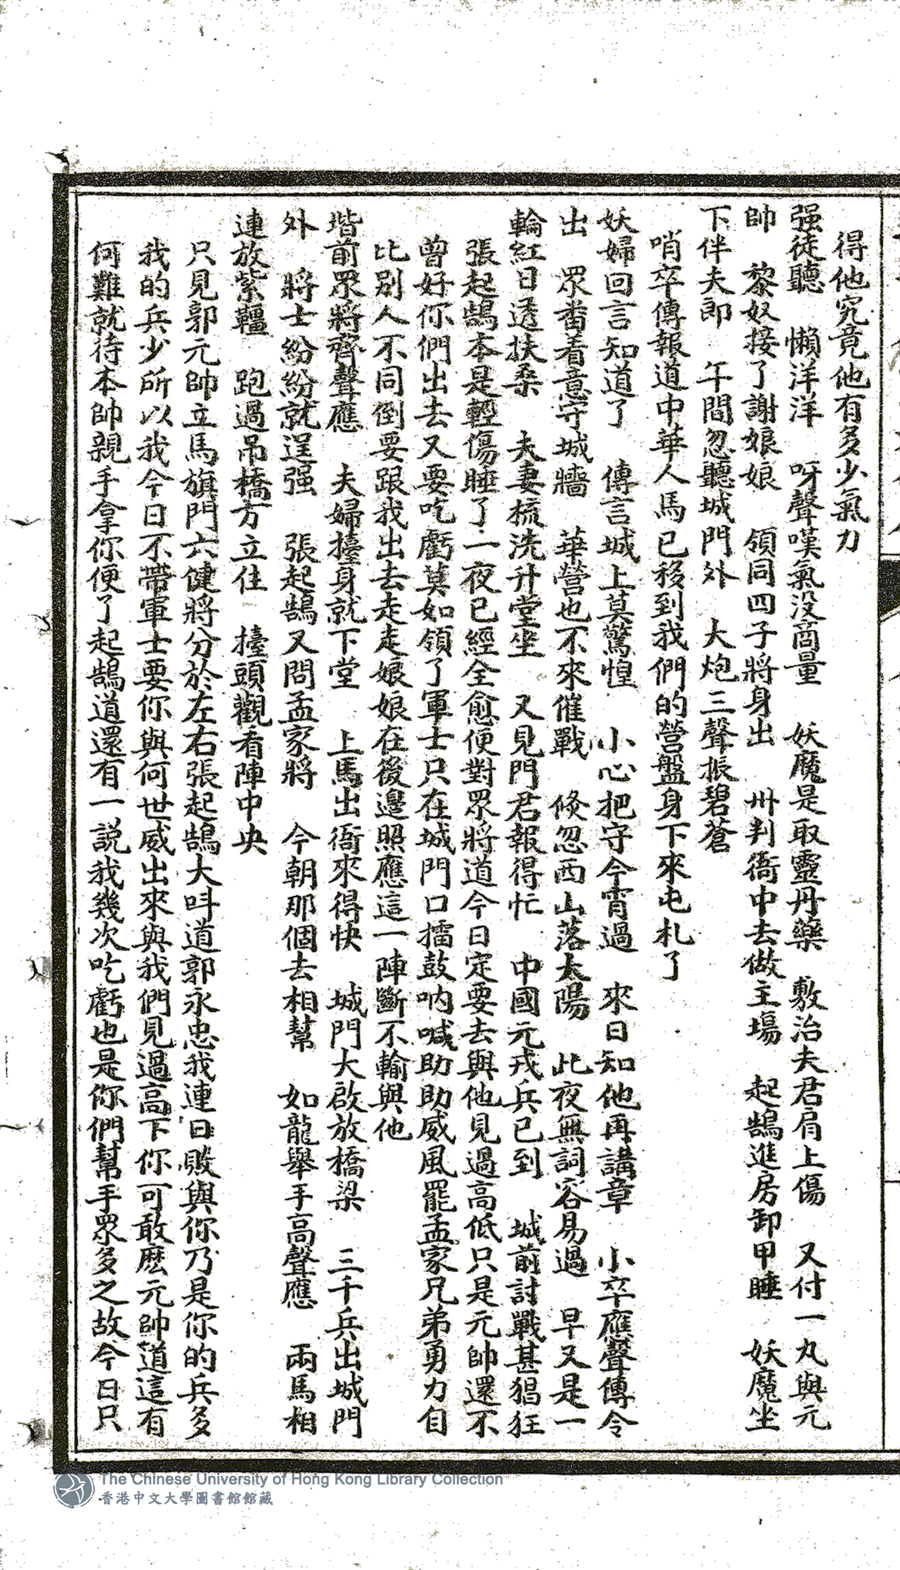 得他究竟他有多少氣力
强徒聽　懶洋洋　呀聲嘆氣没商量　妖魔是取靈丹藥　敷治夫君肩上傷　又付一丸與元
帥　黎奴接了謝娘娘　領同四子將身出　州判衙中去做主塲　起鵠進房卸甲睡　妖魔坐
下伴夫郎　午間忽聽城門外　大炮三聲振碧蒼
哨卒傳報道中華人馬已移到我們的營盤身下來屯札了
妖婦回言知道了　傳言城上莫驚惶　小心把守今宵過　來日知他再講章　小卒應聲傳令
出　眾畨着意守城牆　華營也不來催戰　倐忽西山落太陽　此夜無詞容易過　早又是一
輪紅日透扶桑　夫妻梳洗升堂坐　又見門君報得忙　中國元戎兵已到　城前討戰甚猖狂
張起鵠本是輕傷睡了一夜已經全愈便對眾將道今日定要去與他見過高低只是元帥還不
曾好你們出去又要吃虧莫如領了軍士只在城門口擂鼓吶喊助助威風罷孟家兄弟勇力自
比別人不同倒要跟我出去走走娘娘在後邊照應這一陣斷不輸與他
堦前眾將齊聲應　夫婦擡身就下堂　上馬出衙來得快　城門大啟放橋梁　三千兵出城門
外　將士紛紛就逞强　張起鵠又問孟家將　今朝那個去相幫　如龍舉手高聲應　兩馬相
連放紫韁　跑過吊橋方立住　擡頭觀看陣中央
只見郭元帥立馬旗門六健將分於左右張起鵠大呌道郭永忠我連日敗與你乃是你的兵多
我的兵少所以我今日不帶軍士要你與何世威出來與我們見過高下你可敢麽元帥道這有
何難就待本帥親手拿你便了起鵠道還有一説我幾次吃虧也是你們幫手眾多之故今日只
The Chinese University of Hong Kong Library Collection
香港中文大學圖書館館藏